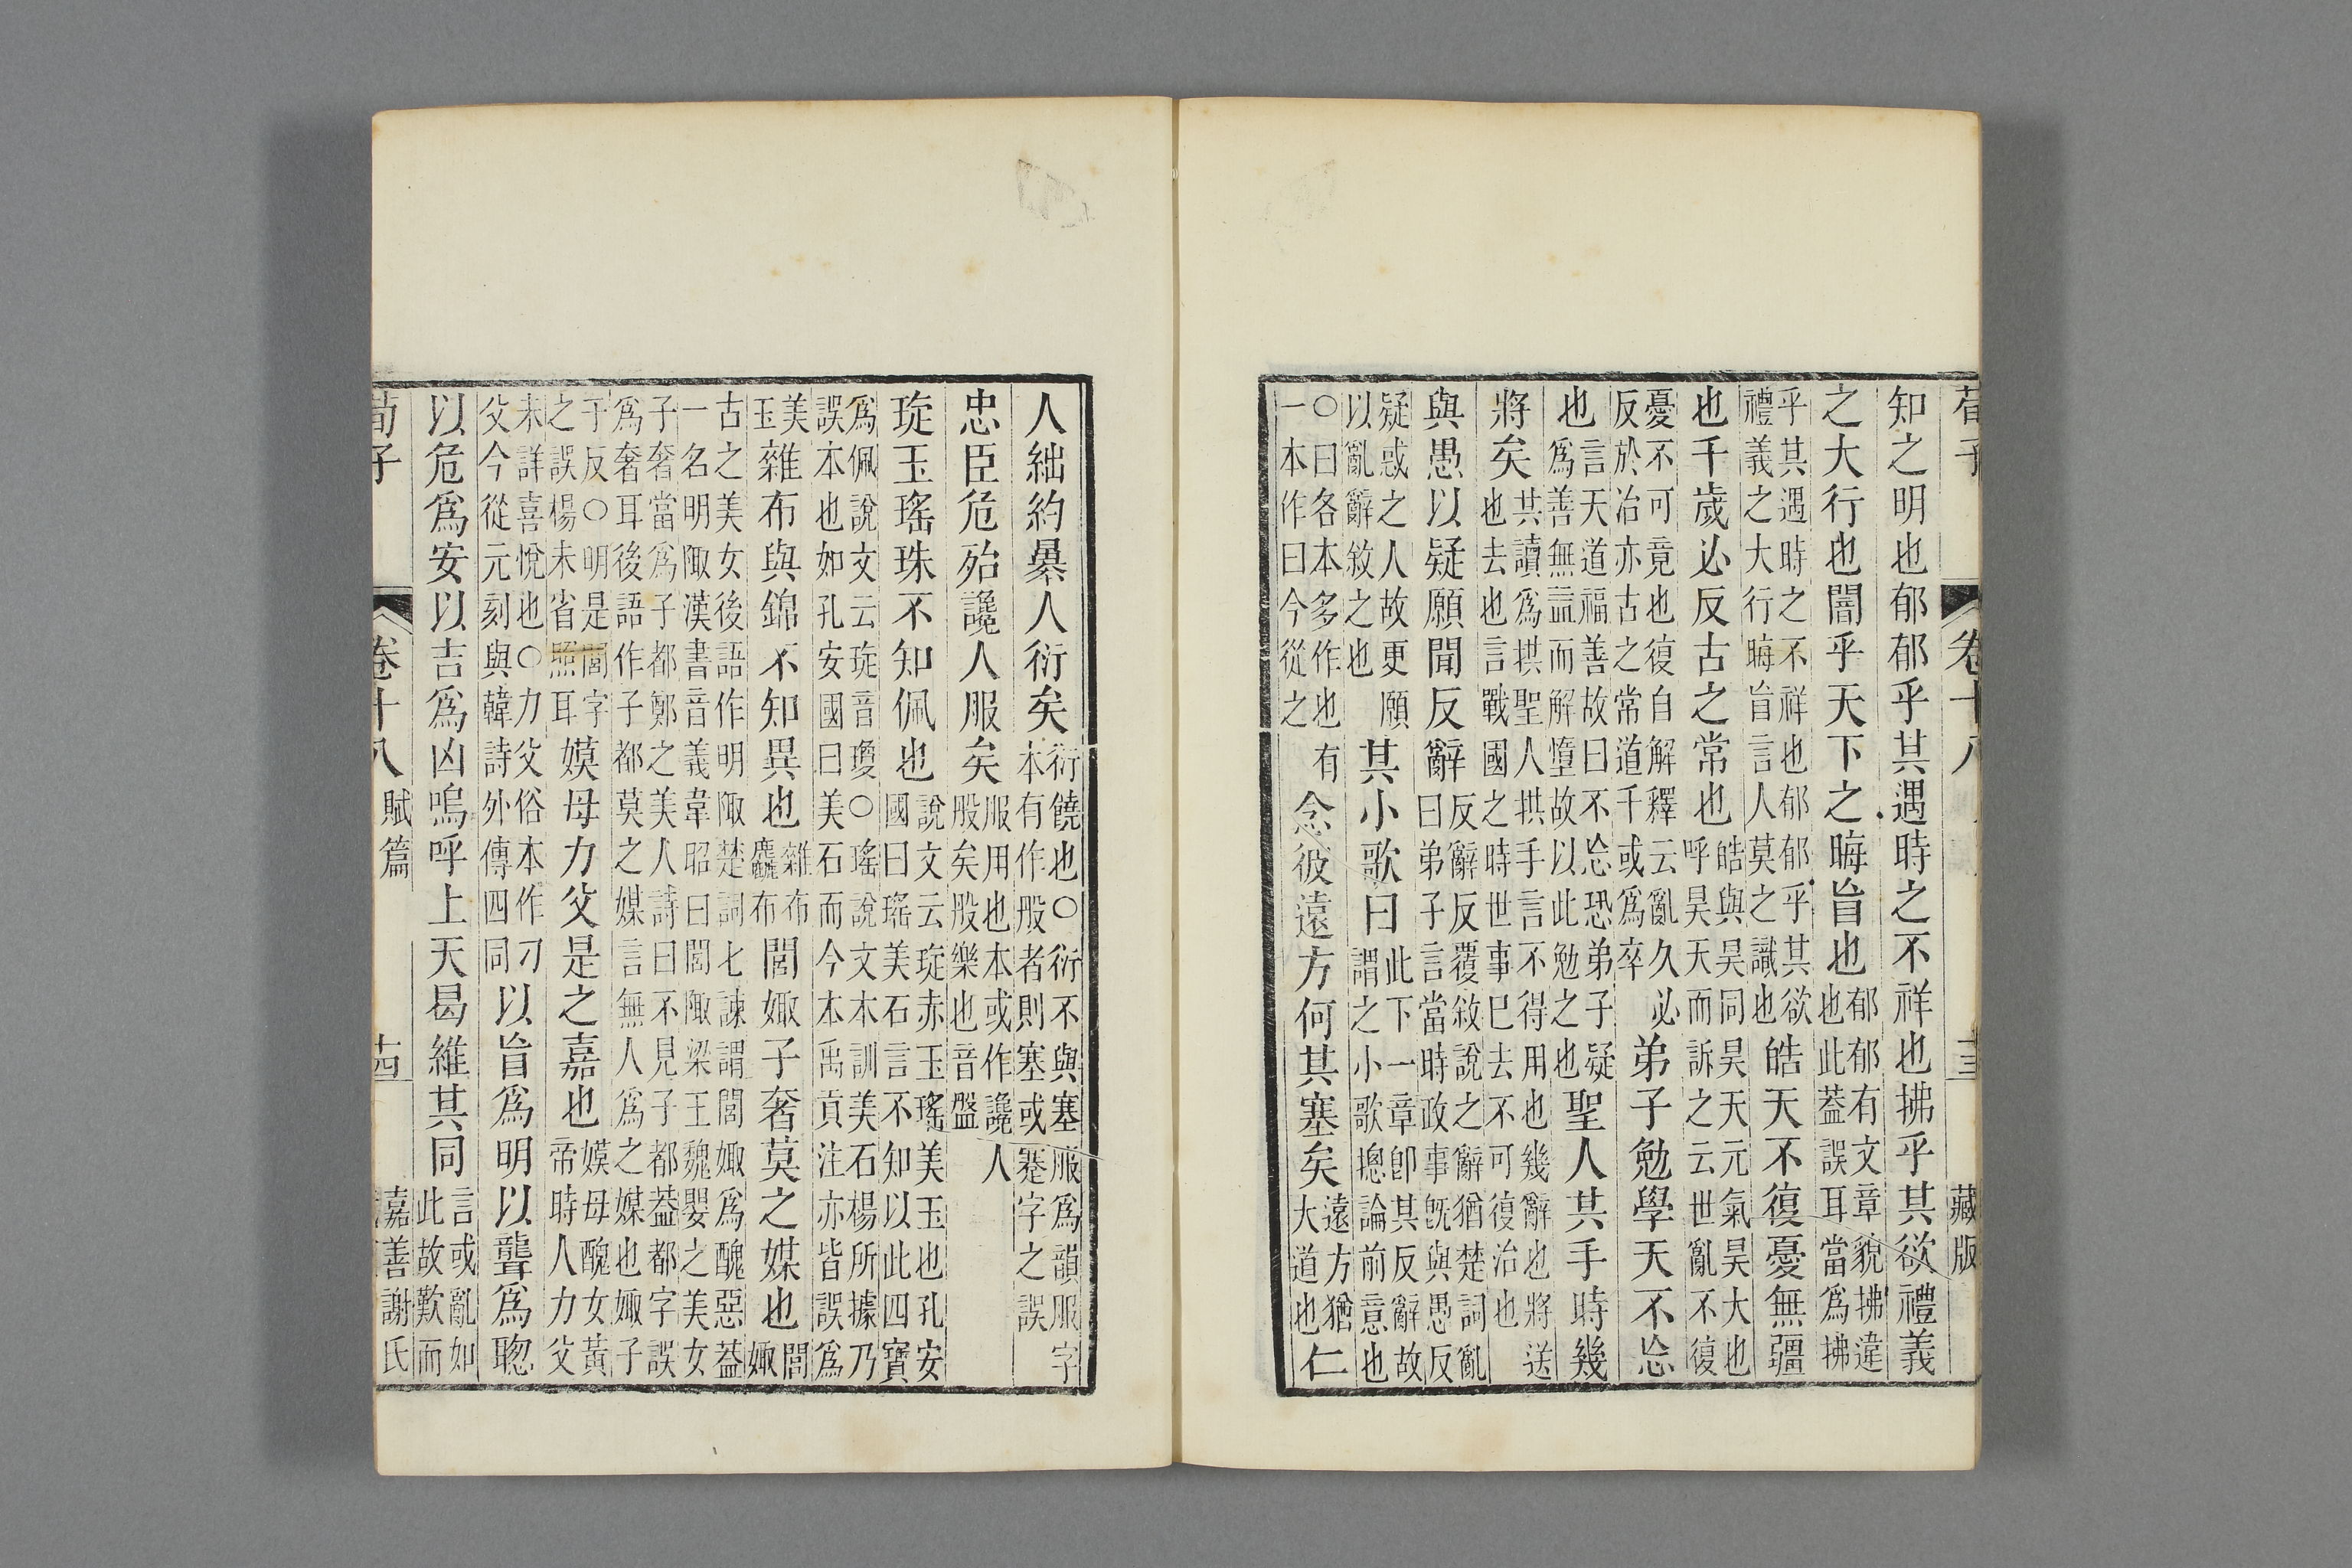 荀子 卷十八 十三 藏版
知之明也郁郁乎其遇時之不祥也拂乎其欲禮義
之大行也闇乎天下之晦盲也郁郁有文章貌拂違也此蓋誤耳當爲拂
乎其遇時之不祥也郁郁乎其欲禮義之大行晦盲言人莫之識也皓天不復憂無疆
也千歲必反古之常也皓與昊同昊天元氣昊大也呼昊天而訴之云世亂不復
憂不可竟也復自解釋云亂久必反於治亦古之常道千或爲卒弟子勉學天不忘
也言天道福善故曰不忘恐弟子疑爲善無益而解墮故以此勉之也聖人共手時幾
將矣共讀爲拱聖人拱手言不得用也幾辭也將送也去也言戰國之時世事巳去不可復治也
與愚以疑願聞反辭反辭反覆敘說之辭猶楚詞亂曰弟子言當時政事旣與愚反
疑惑之人故更願以亂辭敘之也其小歌曰此下一章卽其反辭故謂之小歌摠論前意也
○曰各本多作也有一本作曰今從之念彼遠方何其塞矣遠方猶大道也仁
人絀約暴人衍矣衍饒也○衍不與塞服爲韻服字本有作般者則塞或蹇字之誤
忠臣危殆讒人服矣服用也本或作讒人般矣般樂也音盤
琁玉瑤珠不知佩也說文云琁赤玉瑤美玉也孔安國曰瑤美石言不知以此四寶
爲佩說文云琁音瓊○瑤說文本訓美石楊所據乃誤本也如孔安國曰美石而今本禹貢注亦皆誤爲
美玉雜布與錦不知異也雜布麤布閭娵子奢莫之媒也閭娵
古之美女後語作明陬楚詞七諫謂閭娵爲醜惡蓋一名明陬漢書音義韋昭曰閭陬梁王魏嬰之美女
子奢當爲子都鄭之美人詩曰不見子都蓋都字誤爲奢耳後語作子都莫之媒言無人爲之媒也娵子
于反○明是閭字之誤楊未省照耳嫫母力父是之嘉也嫫母醜女黃帝時人力父
未詳喜悅也○力父俗本作刁父今從元刻與韓詩外傳四同以盲爲明以聾爲聰
以危爲安以吉爲凶嗚呼上天曷維其同言或亂如此故歎而
荀子 卷十八 賦篇 十四 嘉善謝氏